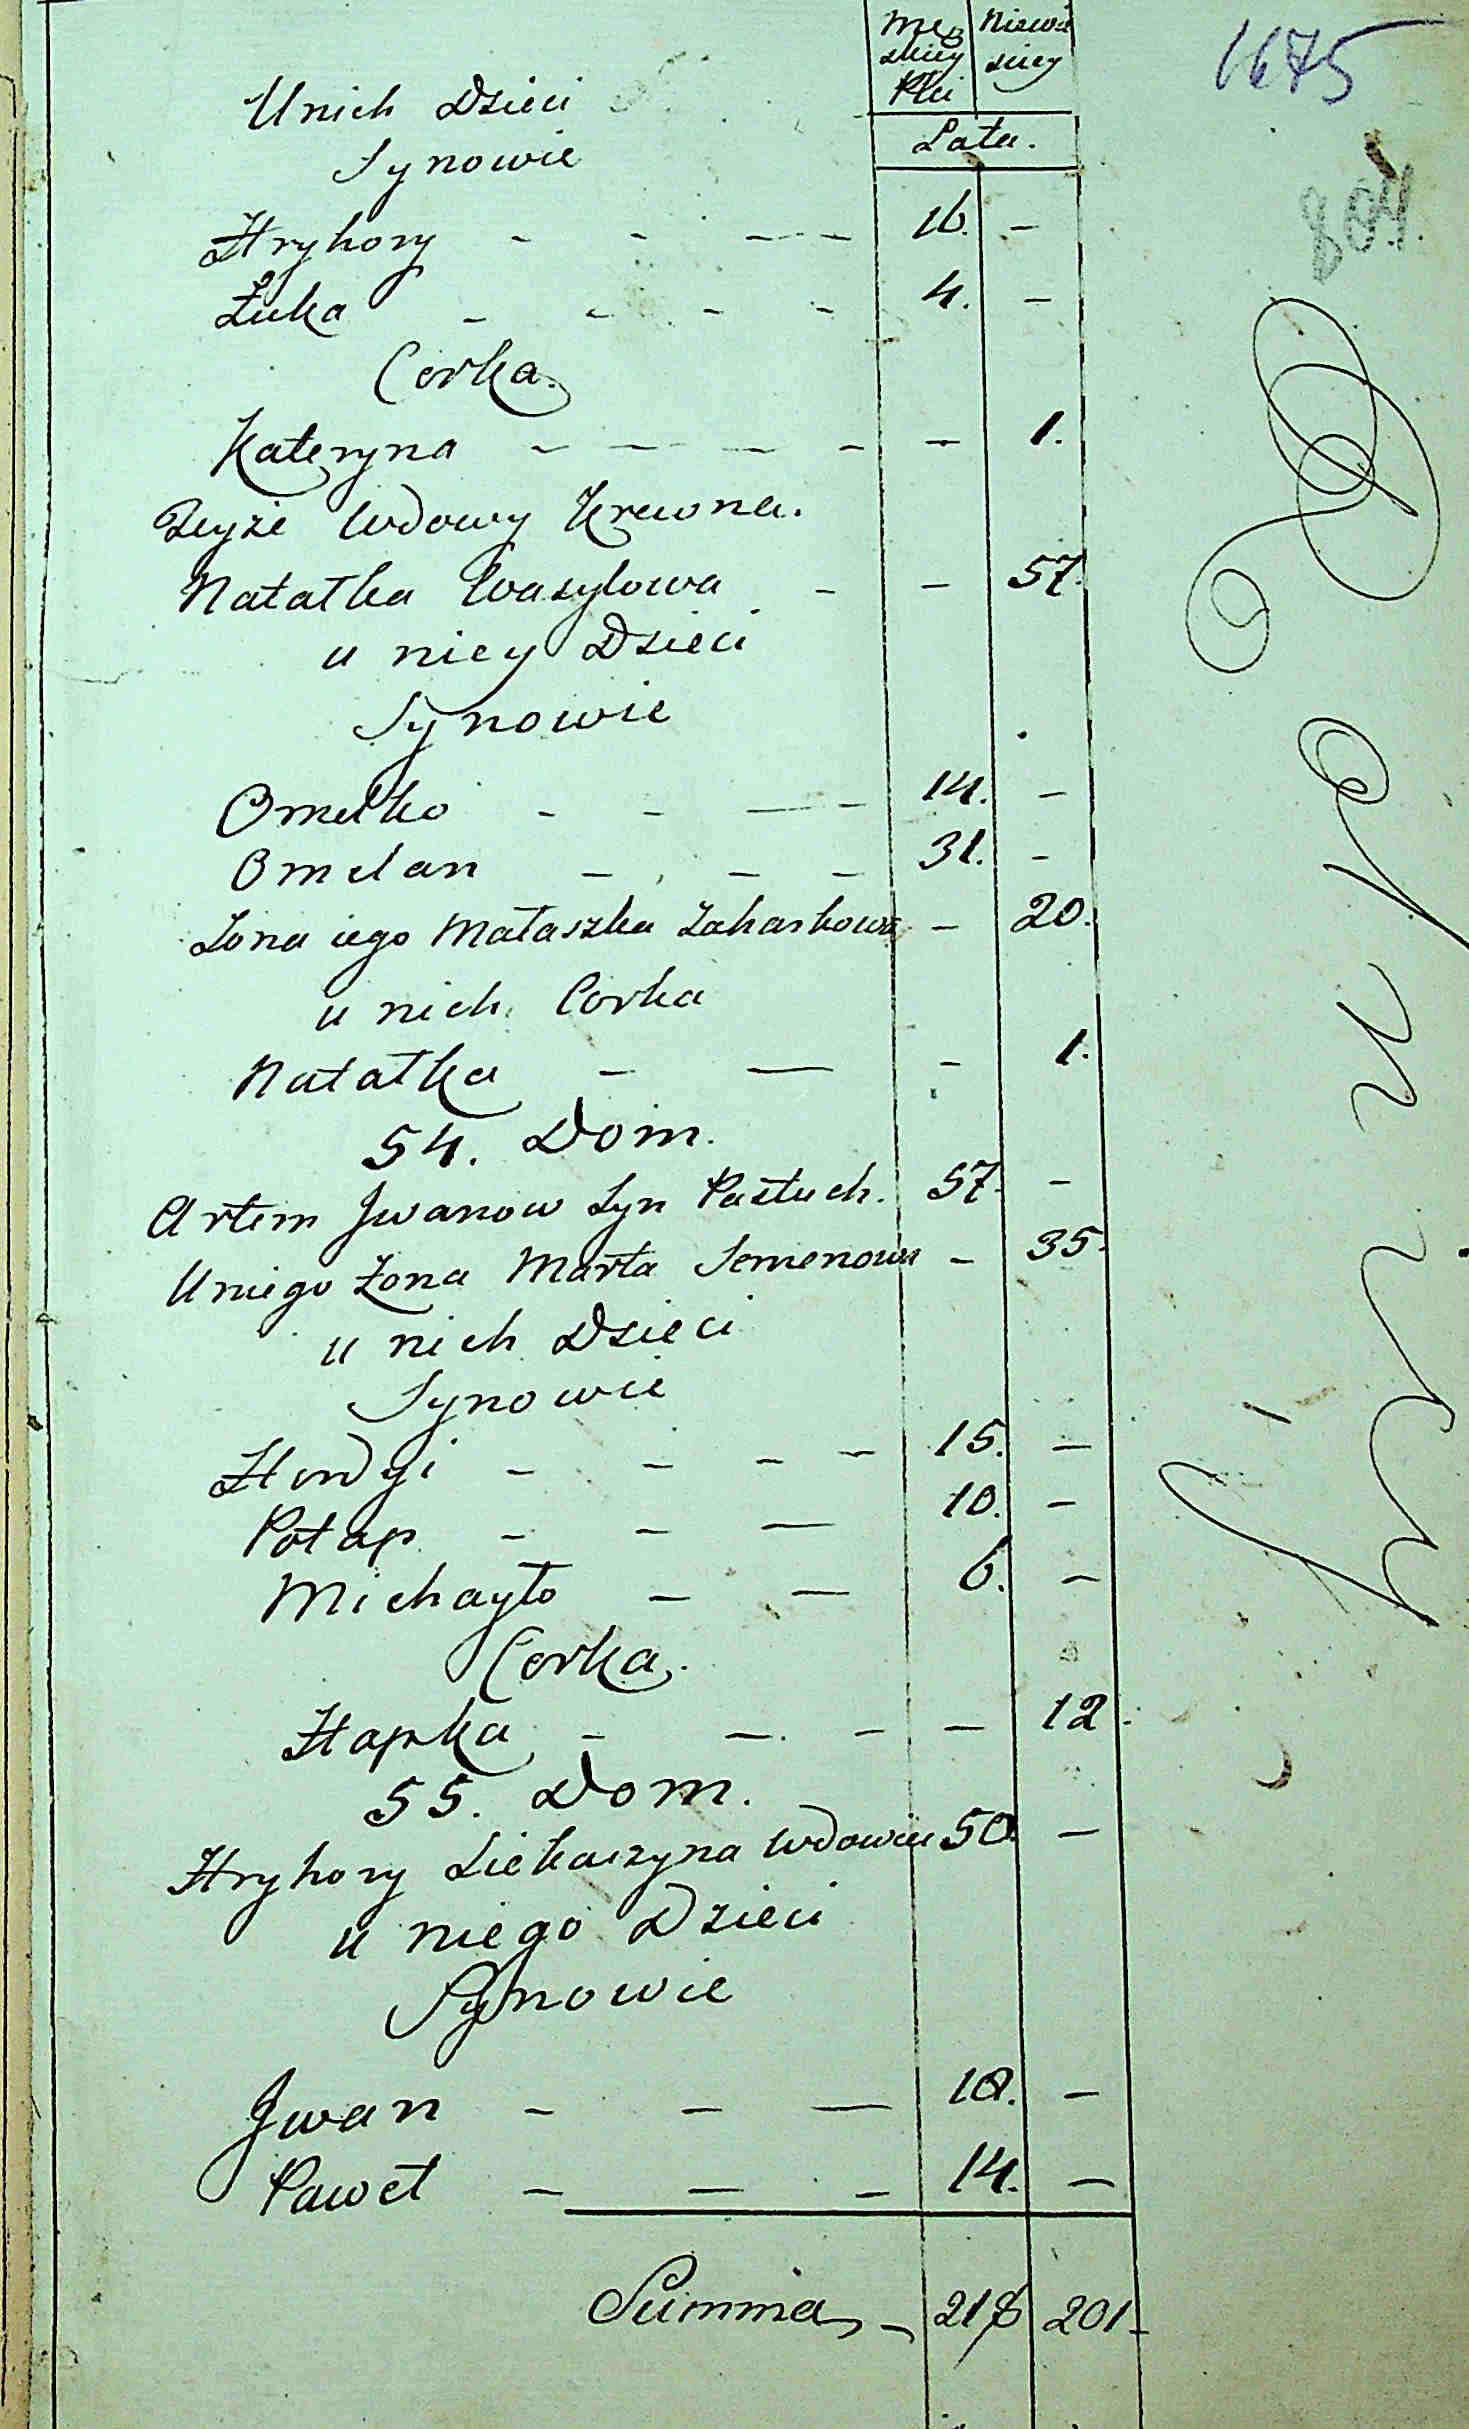 Męz Niewie
skiey sciey
Płci
Lata.
1675
804.
Unich Dzieci
Synowie
Hryhory - - - - 16. -
Łuka - - - - 4. -
Corka.
Kateryna - - - - - 1.
Teyże Wdowy Krewna.
Natałka Wasylowa - - 57.
u niey Dzieci
Synowie
Omelko - - - - 14. -
Omelan - - - 31. -
Zona iego Małaszka Zaharkowa - 20.
u nich Corka
Natałka - - - 1.
54. Dom.
Artem Jwanow Syn Pastuch. 57. -
Uniego Żona Marta Semenowa - 35.
u nich Dzieci
Synowie
Hordyi - - - - 15. -
Potap - - - 10. -
Michayło - - 6. -
Corka.
Hapka - - - - 12.
55. Dom.
Hryhory Wdowiec 50. -
u niego Dzieci
Synowie
Jwan - - - 18. -
Paweł - - - 14. -
Summa - 218 201